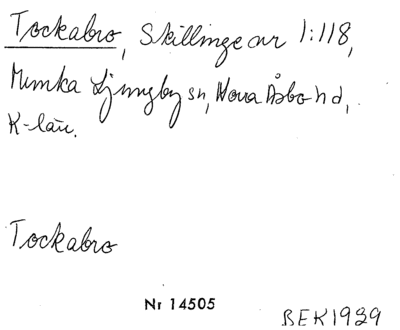 Tockabro, Skillinge nr 1:118,
Munka Ljungby sn, Norra Åsbo hd,
K-län.
Tockabro
Nr 14505
BEK1939